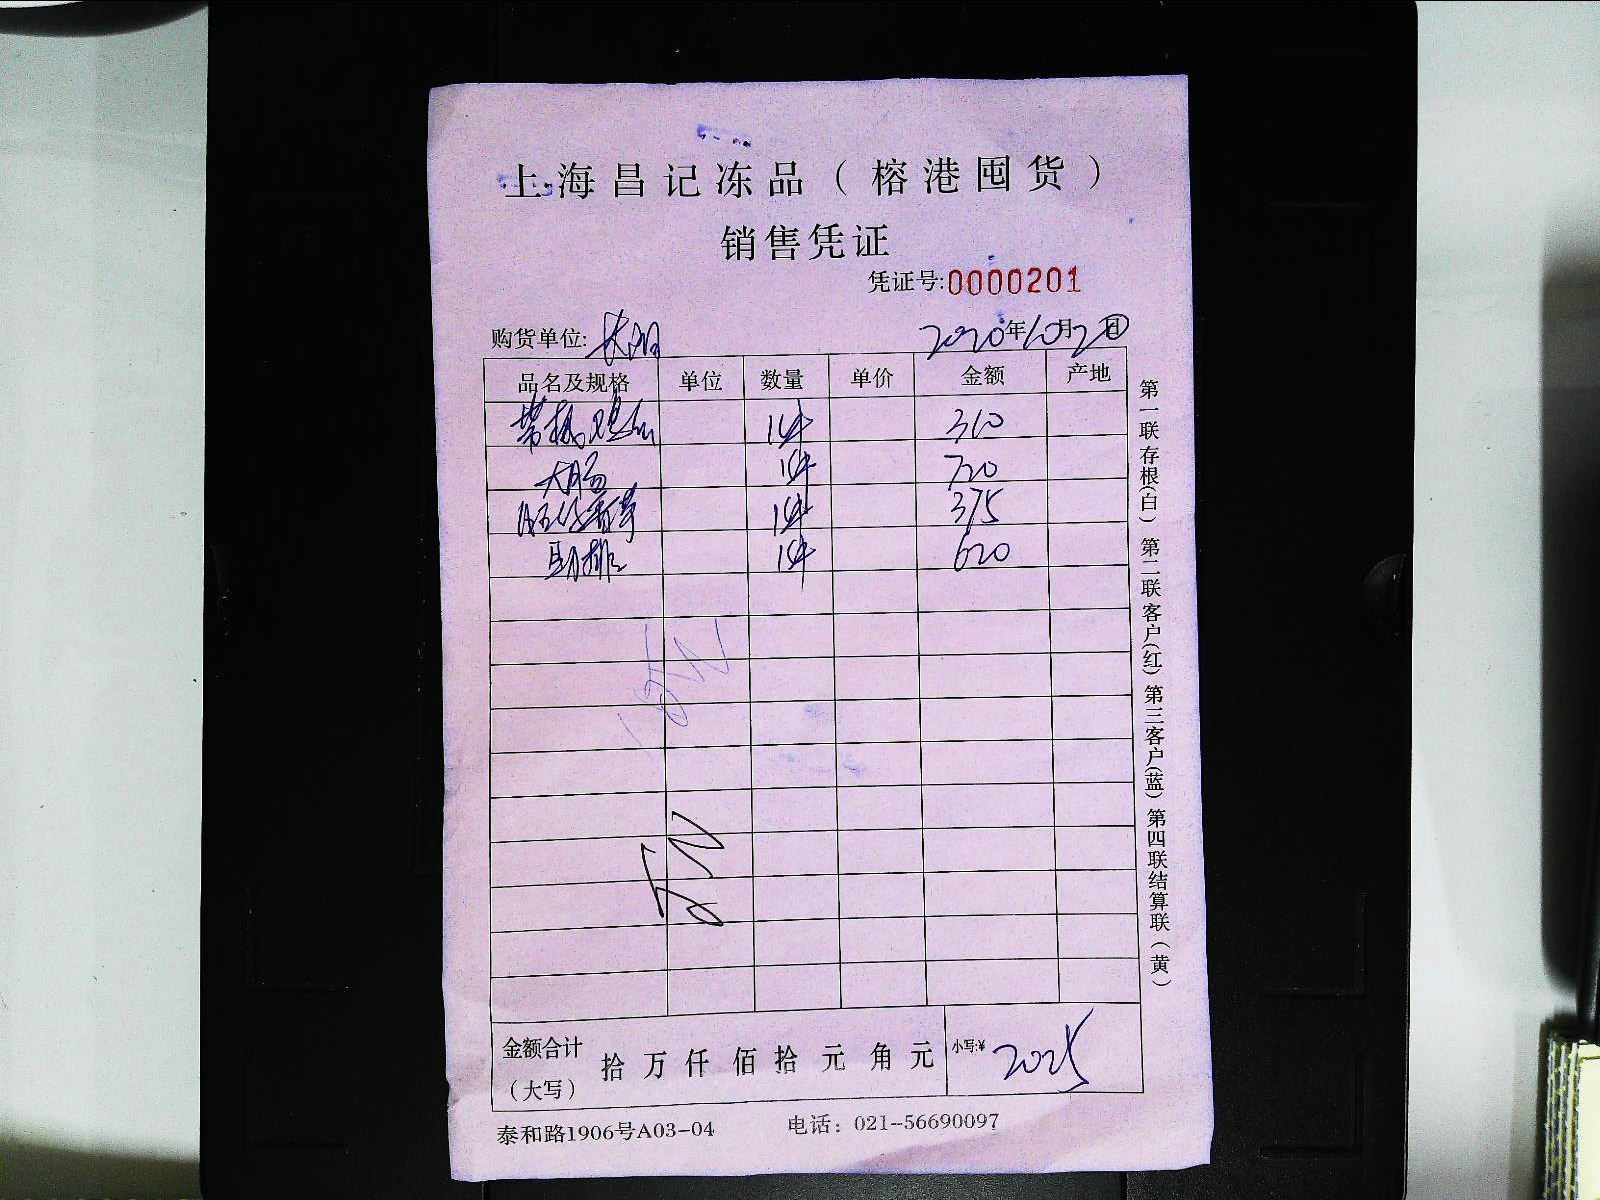 上海昌记冻品（榕港囤货）
销售凭证
凭证号:0000201
购货单位:
2020年10月20日
品名及规格 单位 数量 单价 金额 产地
1件 310
大肠 1件 720
1件 375
肋排 1件 620
金额合计（大写） 拾 万 仟 佰 拾 元 角 元 小写:¥ 2025
泰和路1906号A03-04 电话：021-56690097
第一联存根(白) 第二联客户(红) 第三客户(蓝) 第四联结算联(黄)